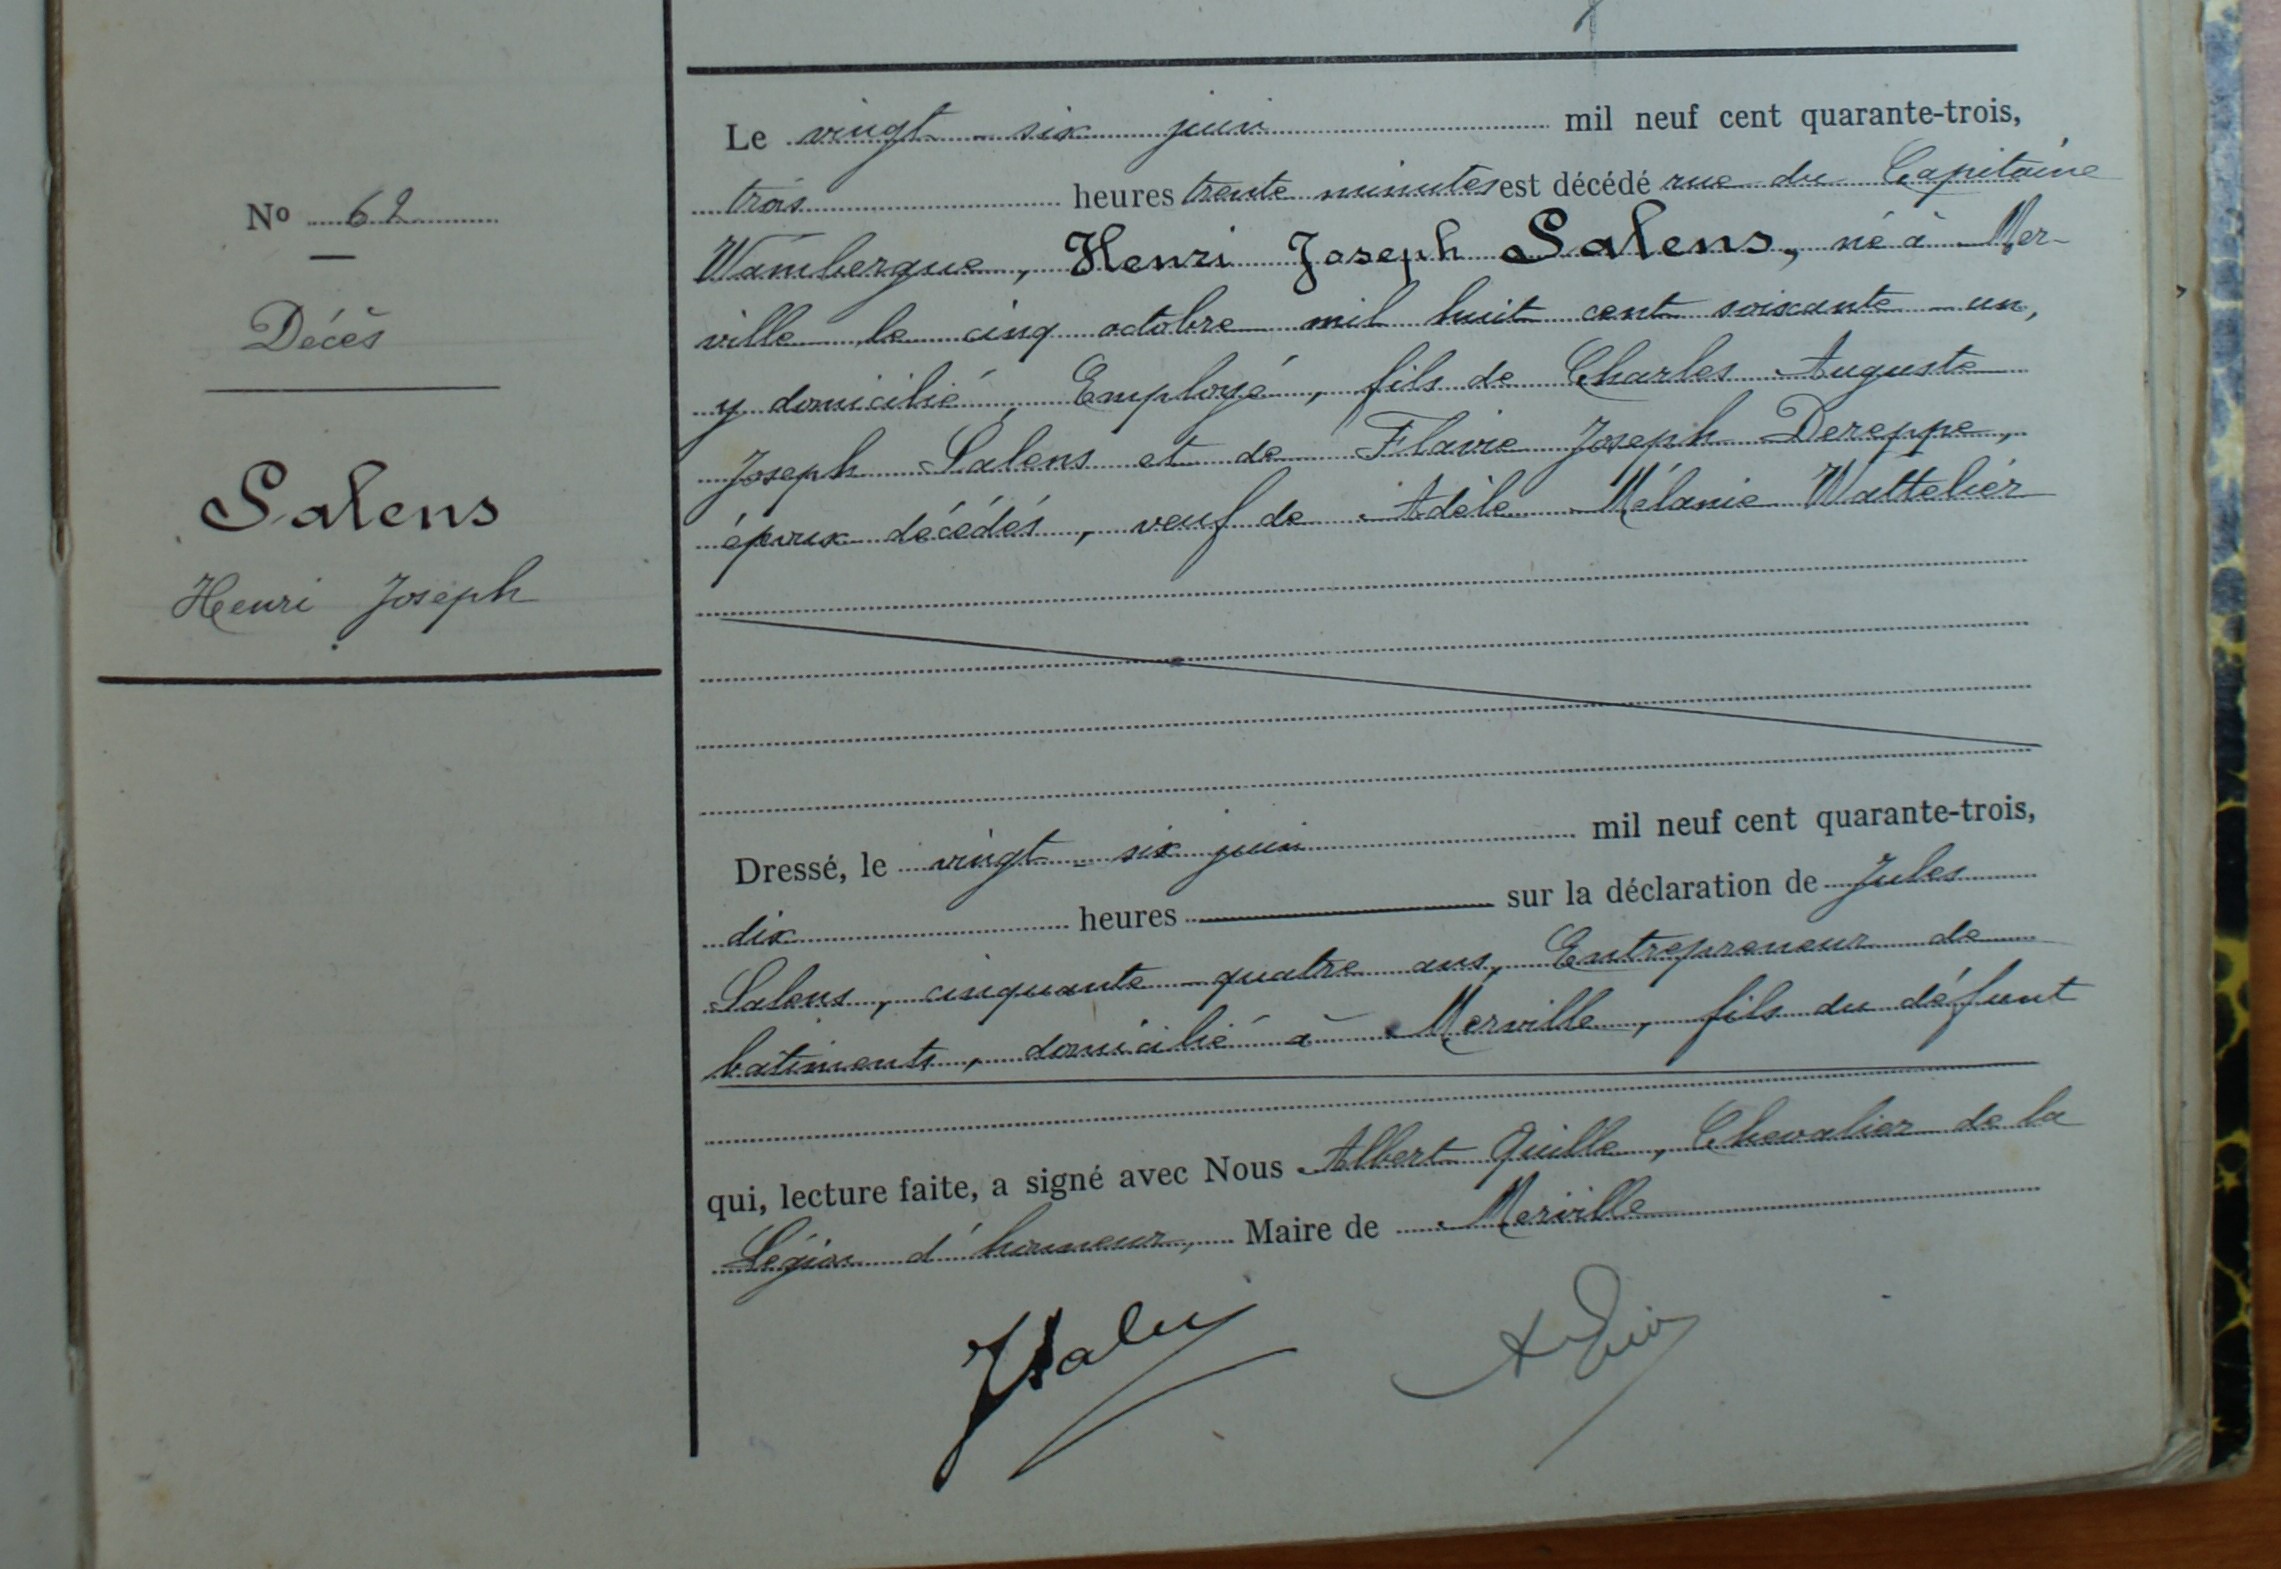 No 62
Décès
Salens
Henri Joseph
Le vingt-six juin mil neuf cent quarante-trois,
trois heures trente minutes est décédé rue du Capitaine
Wambergue, Henri Joseph Salens, né à Mer-
ville le cinq octobre mil huit cent soixante-un,
y domicilié, Employé, fils de Charles Auguste
Joseph Salens et de Flavie Joseph Dereppe,
époux décédés, veuf de Adèle Mélanie Wattelier
Dressé, le vingt-six juin mil neuf cent quarante-trois,
dix heures sur la déclaration de Jules
Salens, cinquante-quatre ans, Entrepreneur de
bâtiments, domicilié à Merville, fils du défunt
qui, lecture faite, a signé avec Nous Albert Quille, Chevalier de la
Légion d'honneur, Maire de Merville